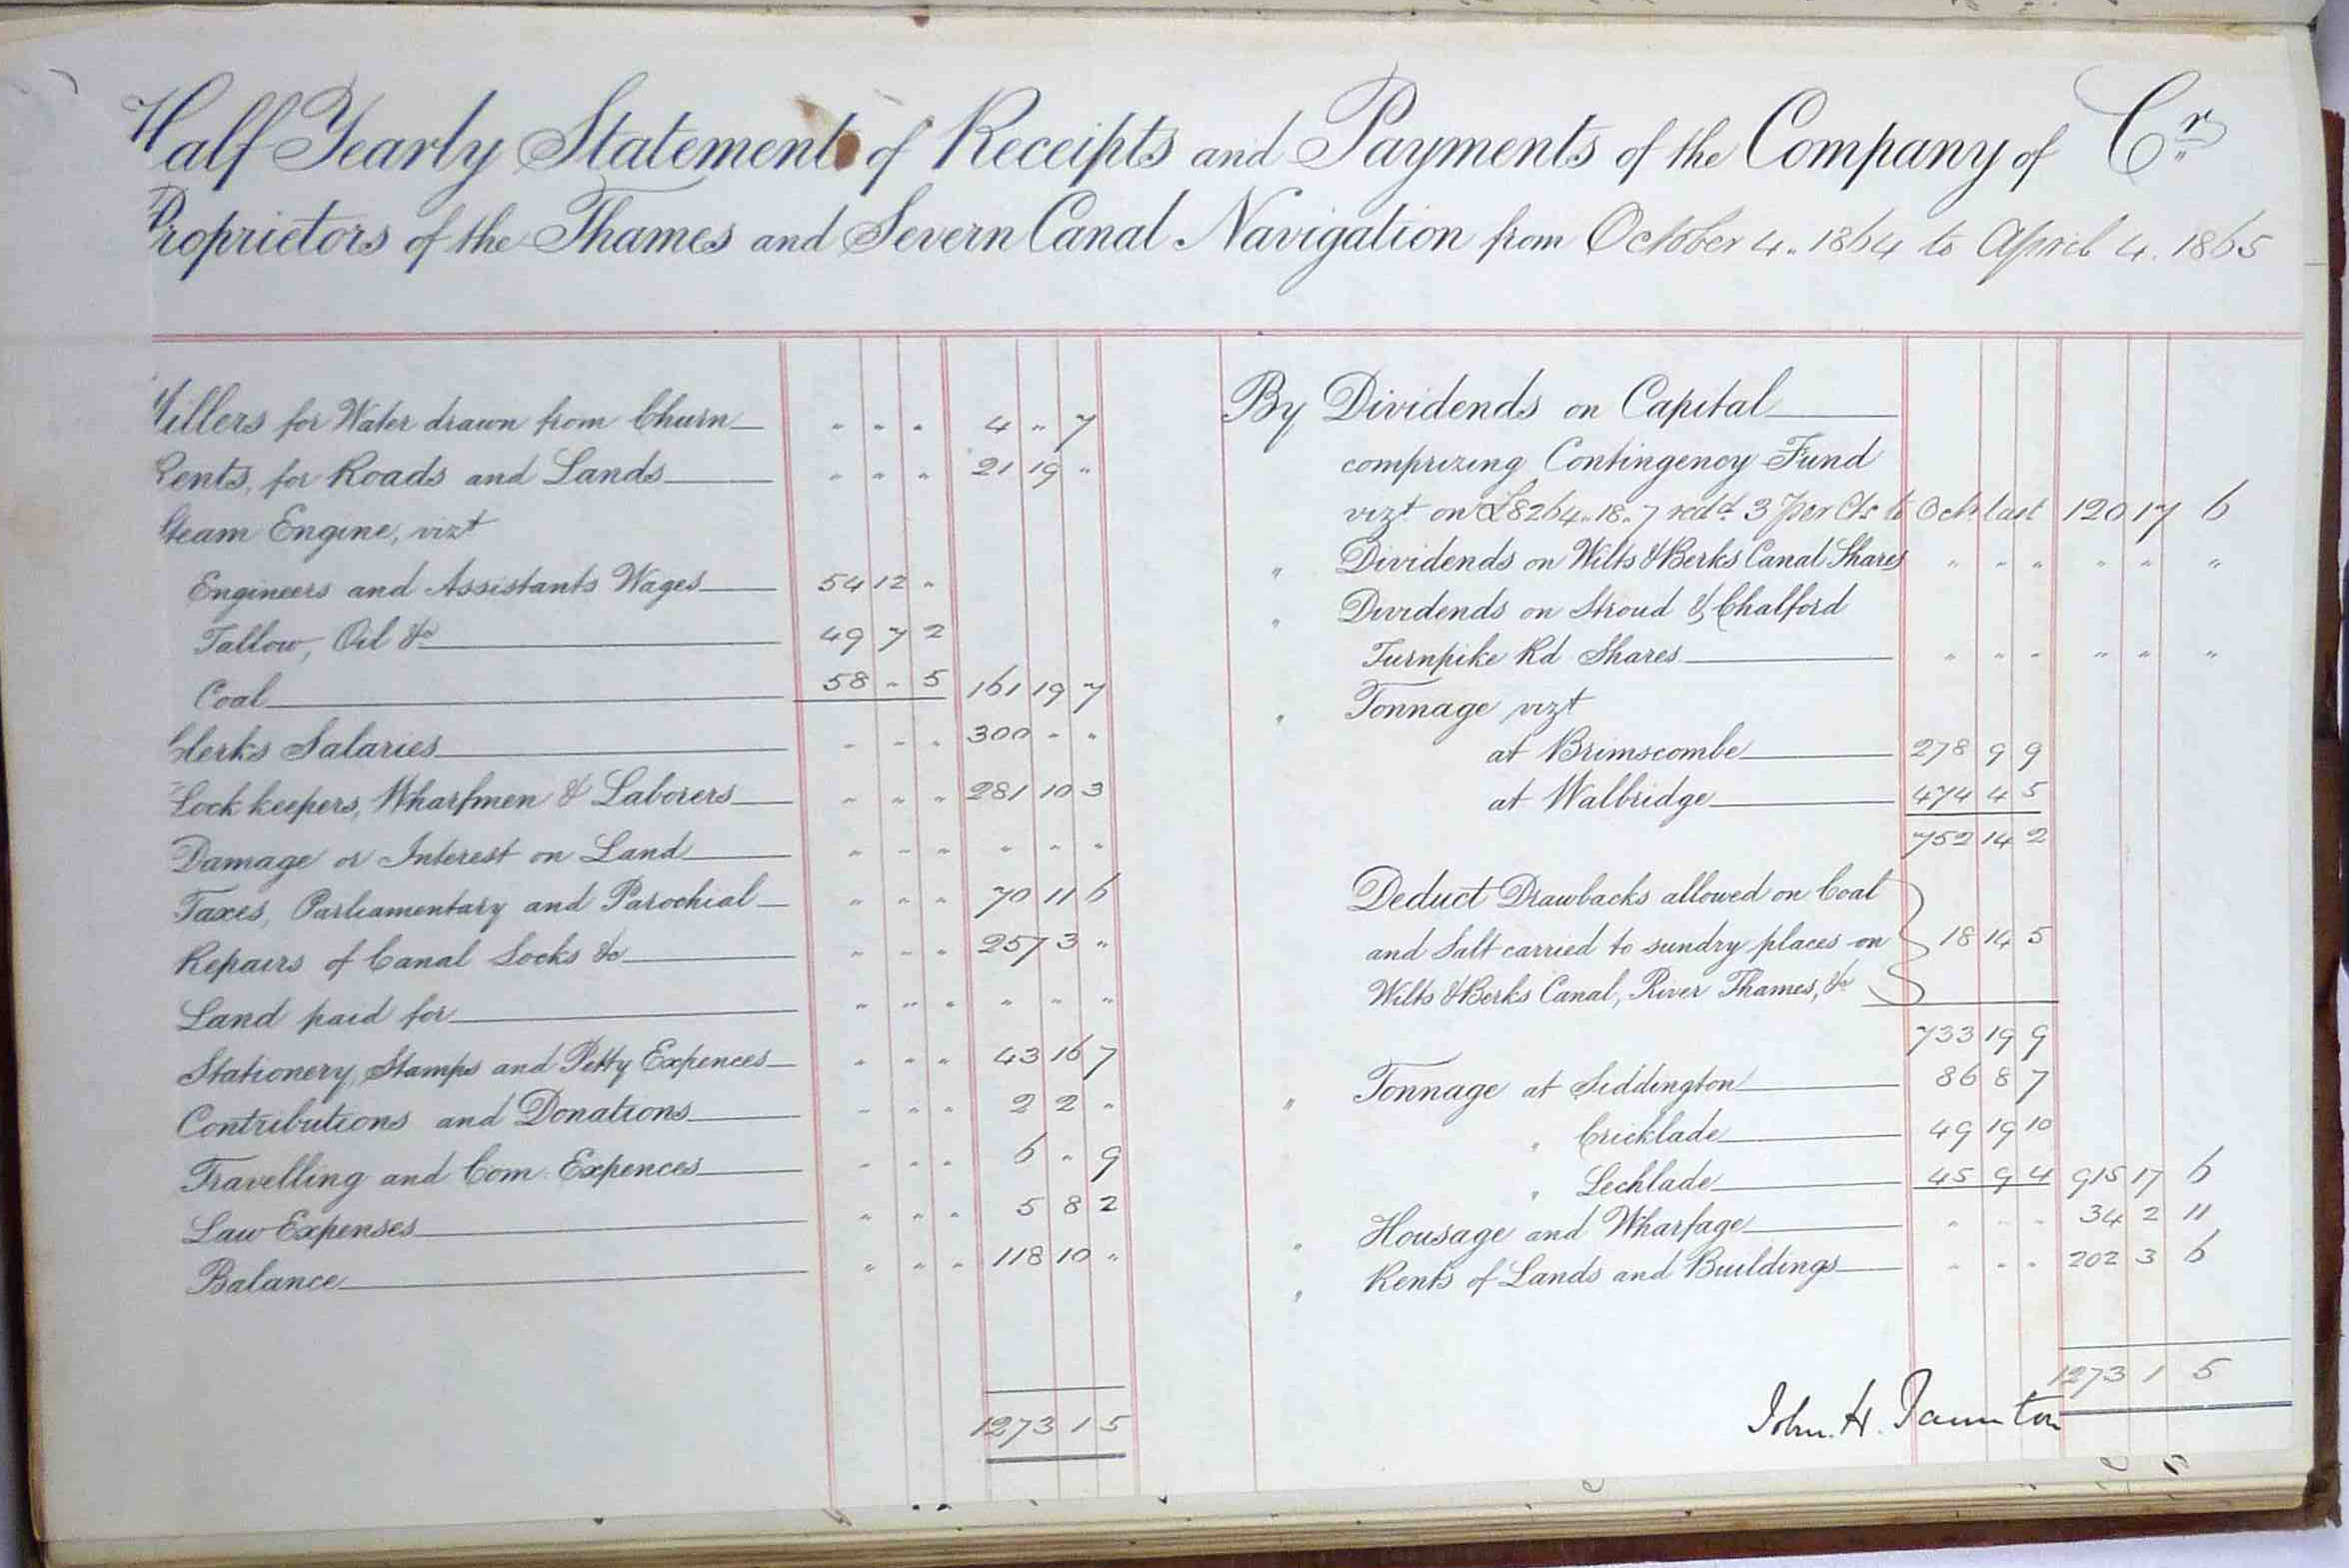 Half Yearly Statement of Receipts and Payments of the Company of Cr
Proprietors of the Thames and Severn Canal Navigation from October 4. 1864 to April 4. 1865
Millers for Water drawn from Churn " " " 4 " 7
Rents, for Roads and Lands " " " 21 19 "
Steam Engine, vizt
Engineers and Assistants Wages 54 12 "
Tallow, Oil &c 49 7 2
Coal 58 " 5 161 19 7
Clerks Salaries " " " 300 " "
Lock keepers, Wharfmen & Laborers " " " 281 10 3
Damage or Interest on Land " " " " " "
Taxes, Parliamentary and Parochial " " " 70 11 6
Repairs of Canal Locks &c " " " 257 3 "
Land paid for " " " " " "
Stationery, Stamps and Petty Expences " " " 43 16 7
Contributions and Donations " " " 2 2 "
Travelling and Com. Expences " " " 6 " 9
Law Expenses " " " 5 8 2
Balance " " " 118 10 "
1273 1 5
By Dividends on Capital
comprizing Contingency Fund
vizt on £8264.18.7 redd 3 per Cts to Octr last 120 17 6
" Dividends on Wilts & Berks Canal Shares " " " " " "
" Dividends on Stroud & Chalford
Turnpike Rd Shares " " " " " "
" Tonnage vizt
at Brimscombe 278 9 9
at Walbridge 474 4 5
752 14 2
Deduct Drawbacks allowed on Coal
and Salt carried to sundry places on 18 14 5
Wilts & Berks Canal, River Thames, &c
733 19 9
" Tonnage at Siddington 86 8 7
" Cricklade 49 19 10
" Lechlade 45 9 4 915 17 6
" Housage and Wharfage " " " 34 2 11
" Rents of Lands and Buildings " " " 202 3 6
1273 1 5
John. H. Taunton